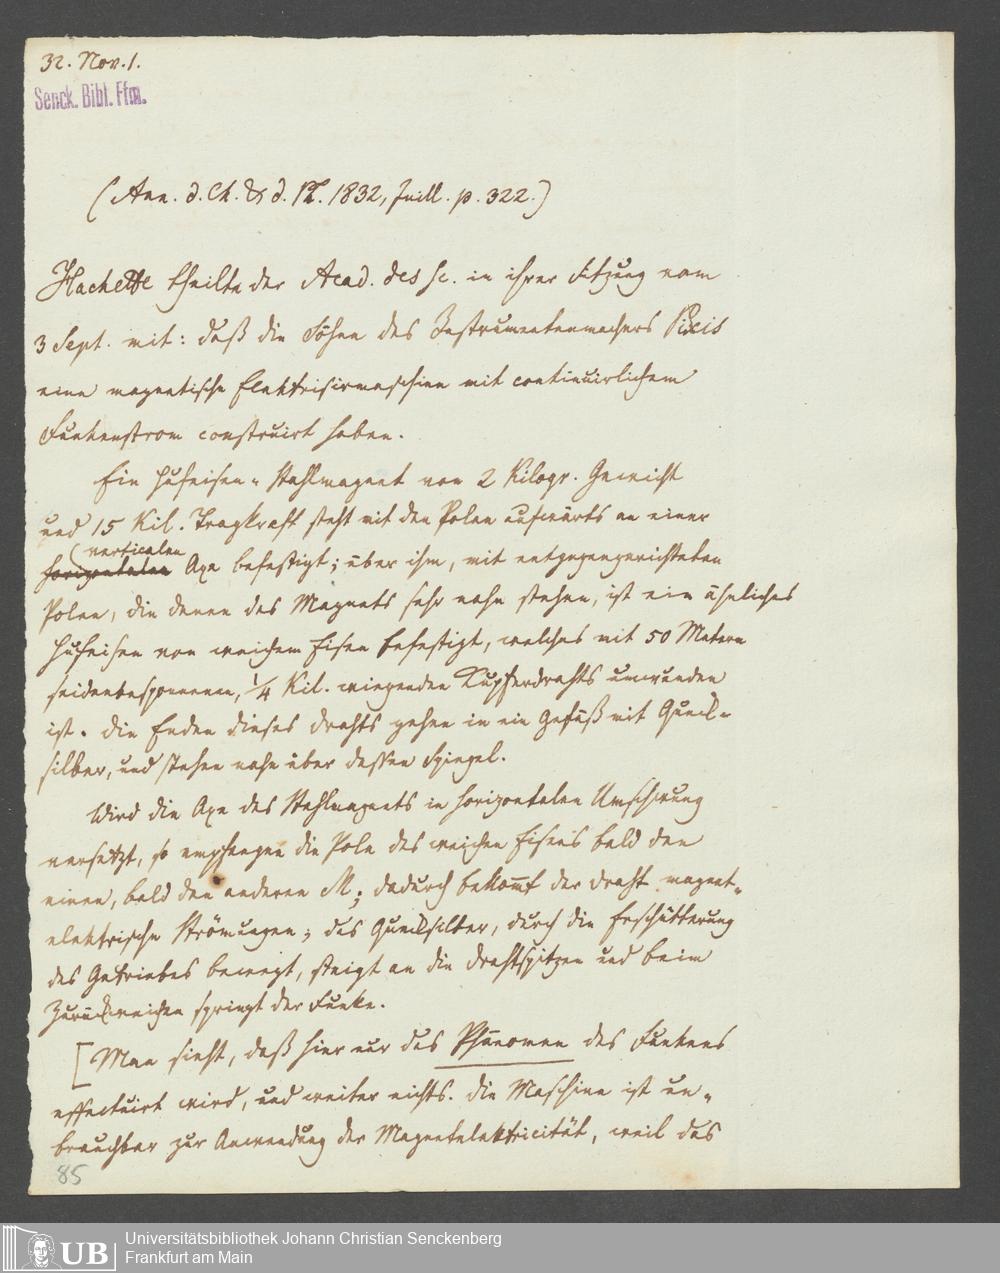 32. Nov. 1.
Senck. Bibl. Ffm.
(Ann. d. Ch. & d. Ph. 1832, Juill. p. 322.)
Hachette theilte der Acad. des sc. in ihrer Sitzung vom
3 Sept. mit: daß die Söhne des Instrumentenmachers Pixis
eine magnetische Elektrisirmaschine mit continuirlichem
Funkenstrom construirt haben.
Ein Hufeisen-Stahlmagnet von 2 Kilogr. Gewicht
und 15 Kil. Tragkraft steht mit den Polen aufwärts an einer
verticalen
horizontalen Axe befestigt; über ihm, mit entgegengerichteten
Polen, die denen des Magnets sehr nahe stehen, ist ein ähnliches
Hufeisen von weichem Eisen befestigt, welches mit 50 Metern
seidenbesponnenen, 1/4 Kil. wiegenden Kupferdrahts umwunden
ist. Die Enden dieses Drahts gehen in ein Gefäß mit Queck-
silber, und stehen nahe über dessen Spiegel.
Wird die Axe des Stahlmagnets in horizontalen Umschwung
versetzt, so empfangen die Pole des weichen Eisens bald den
einen, bald den anderen M; dadurch bekommt der Draht magnet-
elektrische Strömungen; das Quecksilber, durch die Erschütterung
des Getriebes bewegt, steigt an die Drahtspitzen und beim
Zurückweichen springt der Funke.
[Man sieht, daß hier nur das Phänomen des Funkens
effectuirt wird, und weiter nichts. Die Maschine ist un-
brauchbar zur Anwendung der Magnetelektricität, weil das
85
UB
Universitätsbibliothek Johann Christian Senckenberg
Frankfurt am Main